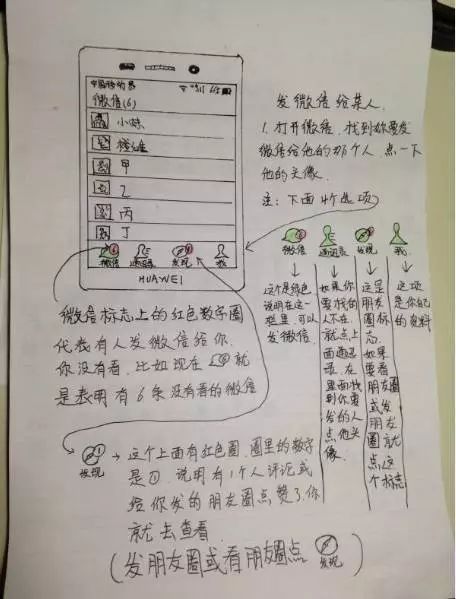 中国移动
微信(6)
小妹
甲
乙
丙
丁
微信
通迅录
发现
我
HUAWEI
发微信给某人.
1. 打开微信, 找到你要发
微信给他的那个人, 点一下
他的头像.
注: 下面4个选项
微信
通迅录
发现
我
这个是绿色
说明在这一
栏里, 可以
发微信.
如果你
要找的
人不在,
就点上
面通迅
录, 在
里面找
到你要
发的人
点他头
像.
这是
朋友
圈标
志.
如果
要看
朋友圈
或发
朋友
圈就
点这
个标志
这项
是你自己
的资料
微信标志上的红色数字圈
代表有人发微信给你.
你没有看. 比如现在 6 就
是表明有6条没有看的微信
发现
这个上面有红色圈, 圈里的数字
是①, 说明有1个人评论或
给你发的朋友圈点赞了, 你
就去查看
(发朋友圈或看朋友圈点 发现)